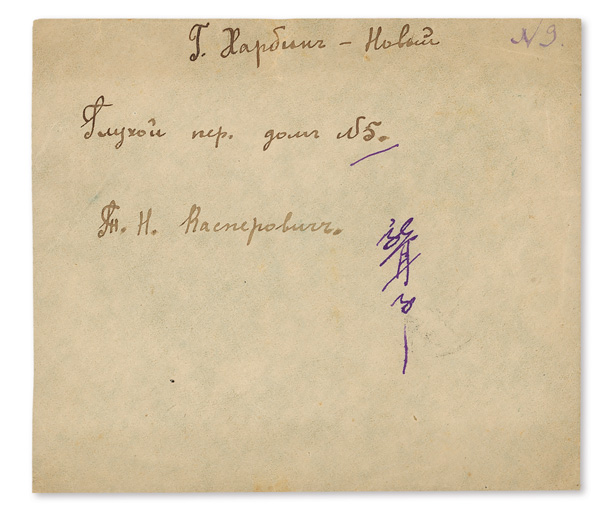 Г. Харбинъ – Новый
N 9.
Глухой пер. домъ № 5.
Н. Касперовичъ.